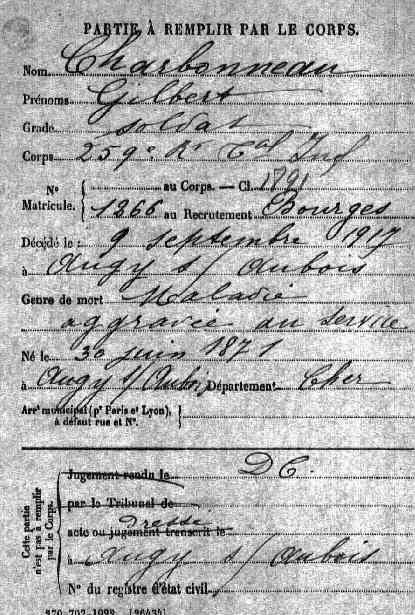 PARTIE À REMPLIR PAR LE CORPS.
Nom Charbonneau
Prénoms Gilbert
Grade soldat
Corps 259e Rt Tal Inf
N° Matricule. { au Corps. — Cl. 1891
1366 au Recrutement Bourges
Décédé le 9 septembre 1917
à Augy s/ Aubois
Genre de mort Maladie
aggravée au service
Né le 30 juin 1871
à Augy s/Aubois Département Cher
Arrt municipal (pr Paris et Lyon), }
à défaut rue et N°.
Cette partie n'est pas à remplir par le Corps.
Jugement rendu le D C.
par le Tribunal de
acte ou jugement transcrit le dressé
à Augy s/ Aubois
N° du registre d'état civil